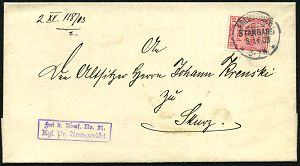 2 XI. 1150/03
2.
STARGARD
An
Den Altsitzer Herrn Johann Krenski
zu
Skurz.
Frei lt. Konf. No. 21.
Kgl. Pr. Amtsgericht.